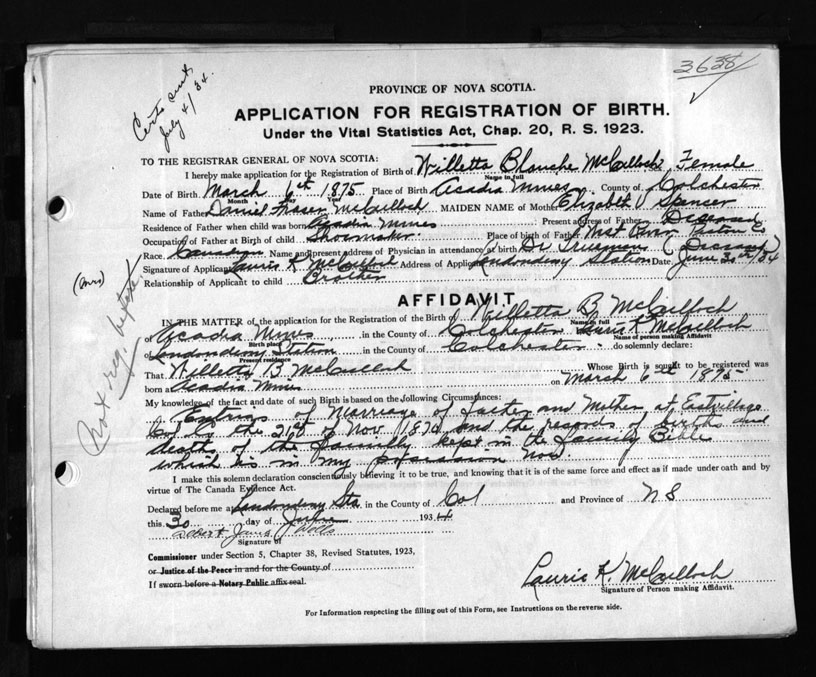 3638
Certs sent
July 4/34.
PROVINCE OF NOVA SCOTIA.
APPLICATION FOR REGISTRATION OF BIRTH.
Under the Vital Statistics Act, Chap. 20, R. S. 1923.
TO THE REGISTRAR GENERAL OF NOVA SCOTIA:
I hereby make application for the Registration of Birth of Willetta Blanche McCulloch Female
Name in full
Date of Birth March 6th 1875 Place of Birth Acadia Mines County of Colchester
Month Day Year
Name of Father Daniel Fraser McCulloch MAIDEN NAME of Mother Elizabeth V Spencer
Residence of Father when child was born Acadia Mines Present address of Father Deceased
Occupation of Father at Birth of child Shoemaker Place of birth of Father West River Pictou Co
Race Canadian Name and present address of Physician in attendance at birth Dr (Deceased)
Signature of Applicant Lauris K McCulloch Address of Applicant Londonderry Station Date June 30th/34
Relationship of Applicant to child Brother
AFFIDAVIT
IN THE MATTER of the application for the Registration of the Birth of Willetta B McCulloch
Name in full
of Acadia Mines in the County of Colchester Lauris K McCulloch
Birth place Name of person making Affidavit
of Londonderry Station in the County of Colchester do solemnly declare:
Present residence
That Willetta B. McCulloch Whose Birth is sought to be registered was
born at Acadia Mines on March 6th 1875
My knowledge of the fact and date of such Birth is based on the following Circumstances:
Entries of Marriage of Father and Mother at Eastville
the 21st of Nov 187 and the records of births and
death of the Familly kept in the Family Bible
which is in my possession now.
I make this solemn declaration conscientiously believing it to be true, and knowing that it is of the same force and effect as if made under oath and by
virtue of The Canada Evidence Act.
Declared before me at Londonderry Sta in the County of Col and Province of N S
this 30 day of June 1934
Albert James Wells
Signature of
Commissioner under Section 5, Chapter 38, Revised Statutes, 1923,
or Justice of the Peace in and for the County of
If sworn before a Notary Public affix seal.
Lauris K. McCulloch
Signature of Person making Affidavit.
For Information respecting the filling out of this Form, see Instructions on the reverse side.
(Mrs)
Not reg